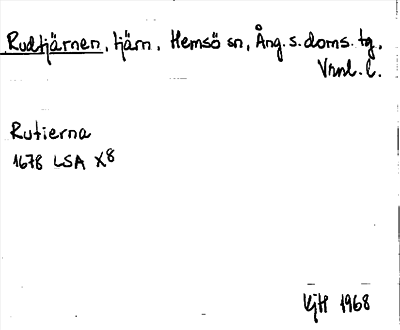 Rudtjärnen, tjärn. Hemsö sn, Ång. s. doms. tg,
Vrnl. l.
Rutierna
1678 LSA X8
KjH 1968